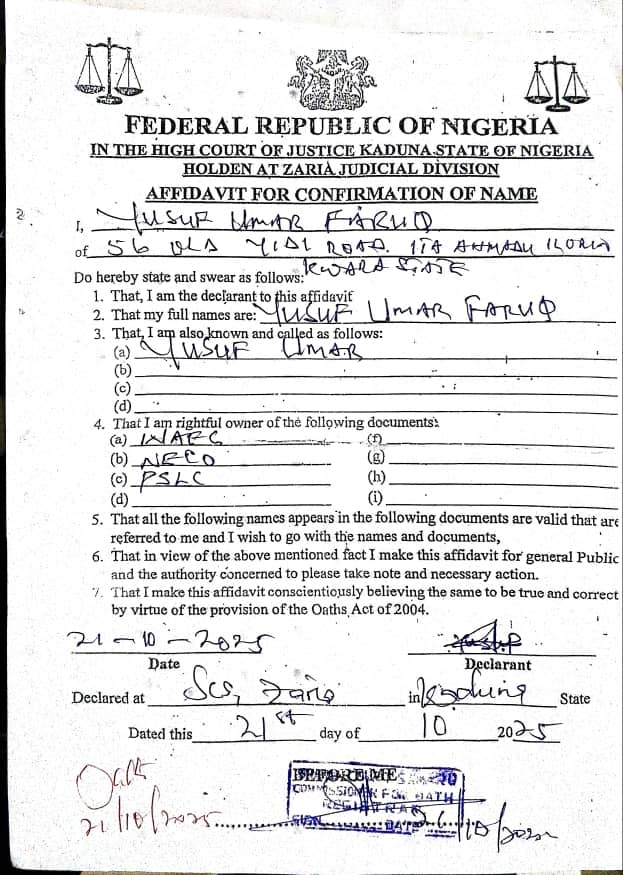 FEDERAL REPUBLIC OF NIGERIA
IN THE HIGH COURT OF JUSTICE KADUNA STATE OF NIGERIA
HOLDEN AT ZARIA JUDICIAL DIVISION
AFFIDAVIT FOR CONFIRMATION OF NAME
I, YUSUF UMAR FARUQ
of 56 OLD YIDI ROAD. ITA AHMADU ILORIN
KWARA STATE
Do hereby state and swear as follows:
1. That, I am the declarant to this affidavit
2. That my full names are: YUSUF UMAR FARUQ
3. That, I am also known and called as follows:
(a) YUSUF UMAR
(b)
(c)
(d)
4. That I am rightful owner of the following documents:
(a) WAEC (f)
(b) NECO (g)
(c) PSLC (h)
(d) (i)
5. That all the following names appears in the following documents are valid that are
referred to me and I wish to go with the names and documents,
6. That in view of the above mentioned fact I make this affidavit for general Public
and the authority concerned to please take note and necessary action.
7. That I make this affidavit conscientiously believing the same to be true and correct
by virtue of the provision of the Oaths Act of 2004.
21-10-2025
Date Declarant
Declared at SCS, Zaria in Kaduna State
Dated this 21st day of 10 2025
Oath
21/10/2025
BEFORE ME
COMMISSIONER FOR OATH
REGISTRAR
SIGN DATE